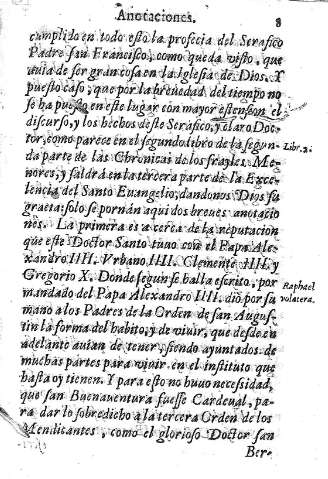 Anotaciones. 8
cumplido en todo esto la profecia del Serafico
Padre san Francisco, como queda visto, que
auia de ser gran cosa en la Iglesia de Dios. Y
puesto caso, que por la breuedad del tiempo no
se ha puesto en este lugar con mayor estension el
discurso, y los hechos deste Serafico, y claro Doc-
tor, como parece en el segundo libro de la segun- Libr. 2.
da parte de las Chronicas de los frayles Me-
nores, y saldrá en la tercera parte de la Exce-
lencia del Santo Euangelio, dandonos Dios su
gracia: solo se pornán aqui dos breues anotacio
nes. La primera es acerca de la reputacion
que este Doctor Santo tuuo con el Papa Ale-
xandro IIII. Vrbano IIII. Clemente IIII. y
Gregorio X. Donde segun se halla escrito, por Raphael
mandado del Papa Alexandro IIII. dió por su volatera.
mano a los Padres de la Orden de san Augus-
tin la forma del habito, y de viuir, que desde en
adelante auian de tener, siendo ayuntados de
muchas partes para viuir en el instituto que
hasta oy tienen. Y para esto no huuo necessidad,
que san Buenauentura fuesse Cardenal, pa-
ra dar lo sobredicho a la tercera Orden de los
Mendicantes, como el glorioso Doctor san
Ber-